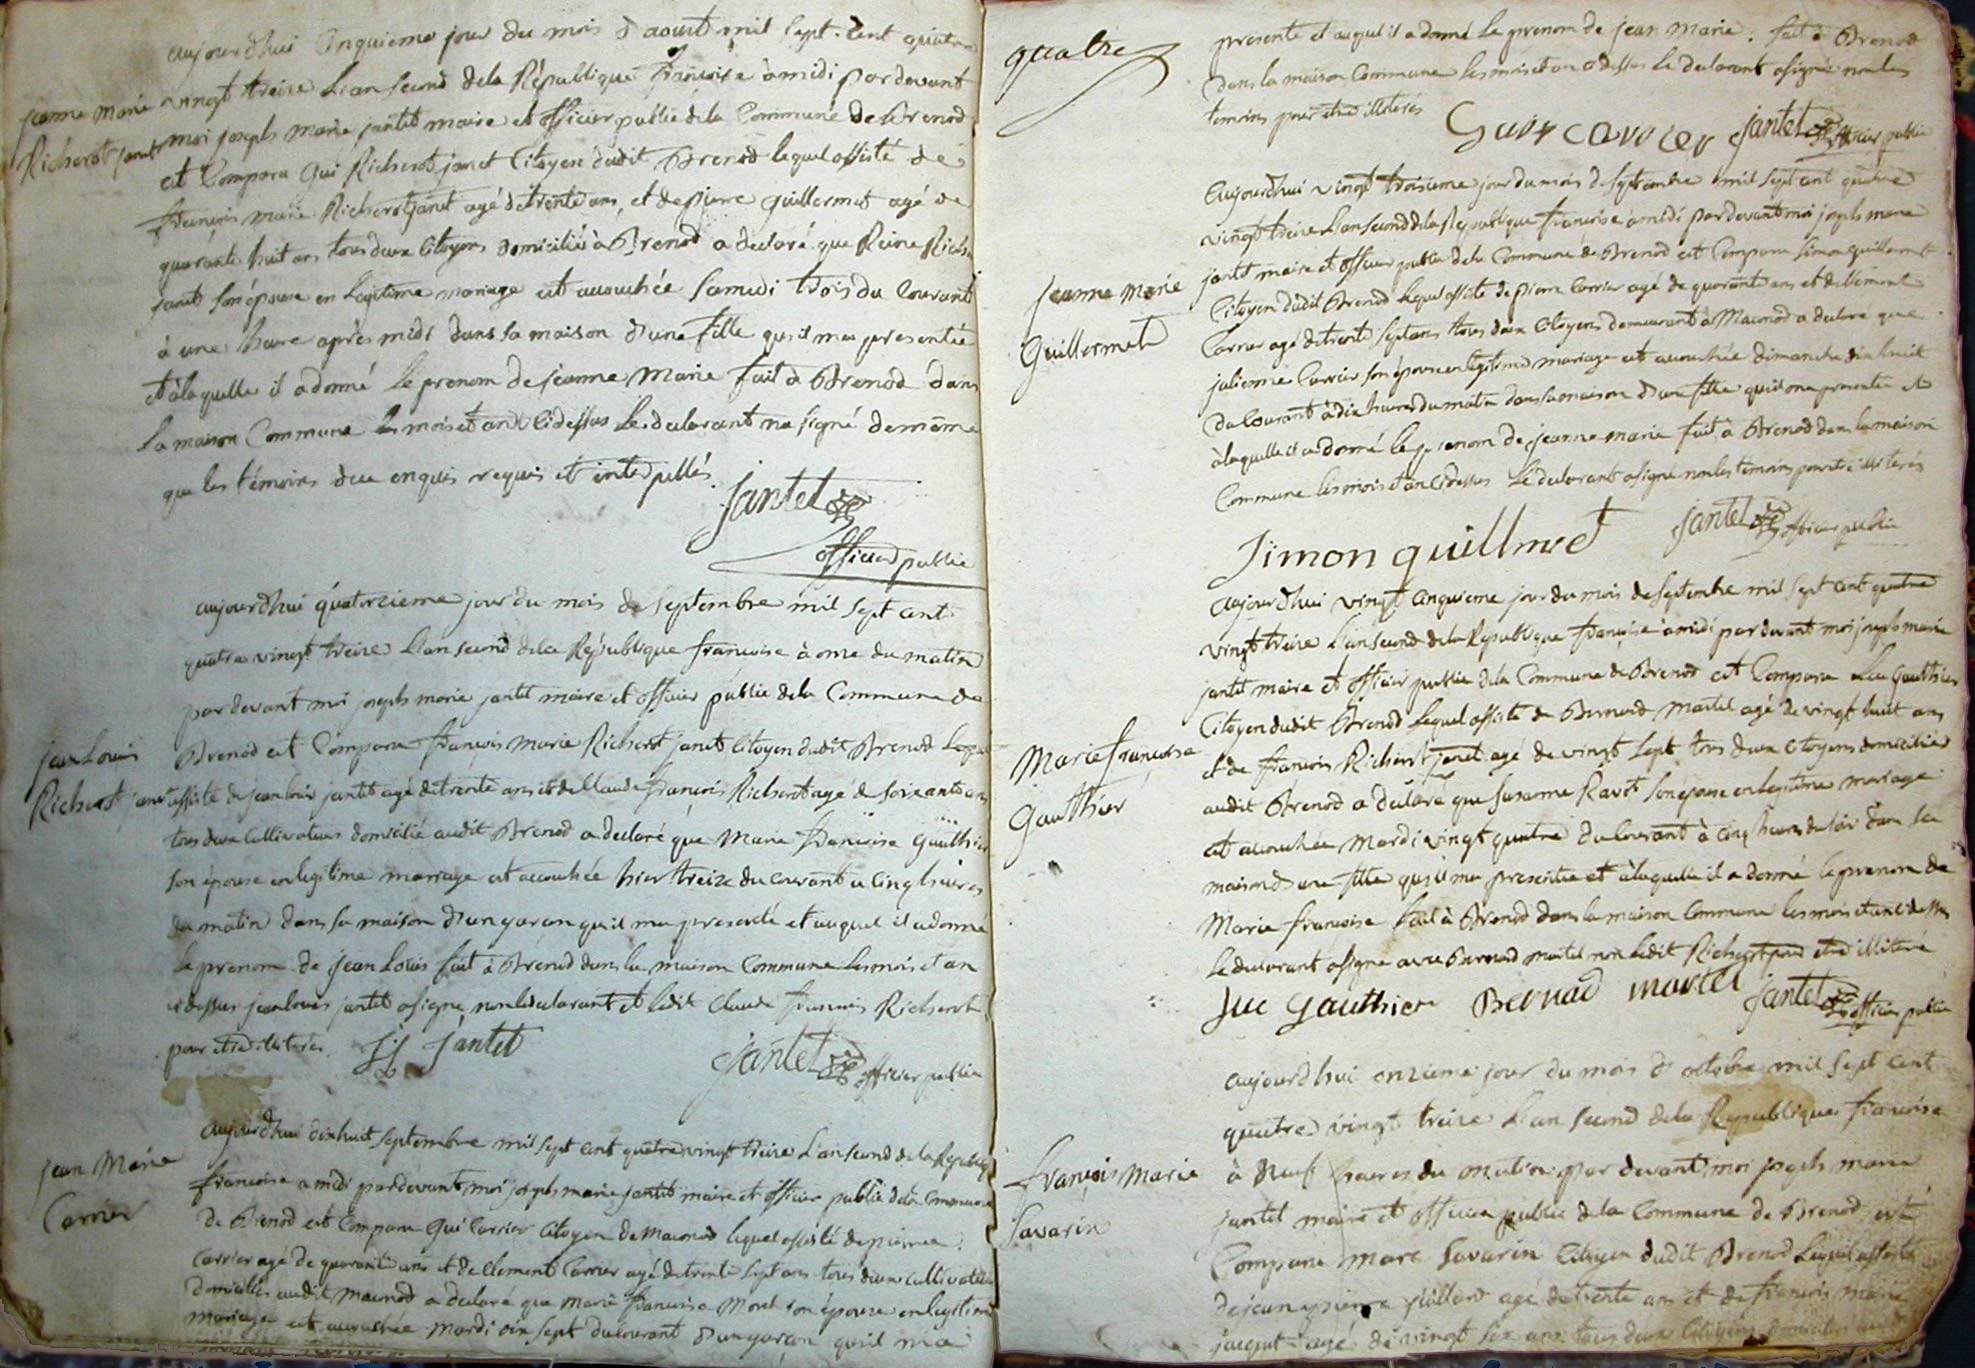 aujourdhui cinquieme jour du mois d'aoust mil sept cent quatre
vingt treize L'an second dela République françoise à midi pardevant
jeanne marie
Richerot janet
moi joseph marie jantet maire et officier public dela Commune de Brenod
est Comparu Gui Richerot janet Citoyen dudit Brenod lequel assisté de
françois marie Richerot janet agé de trente ans, et de pierre guillermet agé de
quarante huit ans tous deux Citoyens domiciliés à Brenod a declaré que Reine
janet son épouse en legitime mariage est accouchée samedi trois du Courant
à une heure après midi dans sa maison d'une fille qu'il ma presentée
et à laquelle il a donné le prenom de jeanne Marie fait à Brenod dans
la maison Commune les mois et an Cidessus Le declarant na signé de même
que les témoins de ce enquis requis et interpellés
jantet
officier public
aujourdhui quatorzieme jour du mois de septembre mil sept cent
quatre vingt treize L'an second dela République françoise à onze du matin
pardevant moi joseph marie jantet maire et officier public dela Commune de
jean Louis
Richerot janet
Brenod est Comparu françois marie Richerot janet Citoyen dudit Brenod
assisté de jean louis jantet agé de trente ans et de Claude françois Richerot agé de soixante ans
tous deux Cultivateurs domicilié audit Brenod a declaré que Marie françoise Gauthier
son épouse en legitime mariage est accouchée hier treize du courant a cinq heures
du matin dans sa maison d'un garçon qu'il ma presenté et auquel il a donné
le prenom de jean Louis fait à Brenod dans la maison Commune les mois et an
cidessus jean louis jantet a signé, non le declarant et ledit Claude françois Richerot
pour etre illiterés
jl jantet
jantet officier public
jean Marie
Carrier
aujourdhui dixhuit septembre mil sept cent quatre vingt treize L'an second de la
françoise a midi pardevant moi joseph marie jantet maire et officier public dela Commune
de Brenod est Comparu Gui Carrier Citoyen de Macornod lequel assisté de pierre
Carrier agé de quarante ans et de Clement Carrier agé de trente sept ans tous deux cultivateurs
domiciliés audit Macornod a declaré que marie françoise Morel son épouse en legitime
mariage est accouchée mardi dix sept du courant d'un garçon qu'il ma
quatre
presenté et auquel il a donné le prenom de jean marie. fait à Brenod
dans la maison Commune les mois et an cidessus Le declarant a signé non les
temoins pour etre illiterés
jantet officier public
aujourdhui vingt troisieme jour du mois de septembre mil sept cent quatre
vingt treize L'an second de la République françoise a midi pardevant moi joseph marie
jeanne Marie
Guillermet
jantet maire et officier public dela Commune de Brenod est Comparu simon guillermet
Citoyen dudit Brenod lequel assisté de pierre Carrier agé de quarante ans et de Clement
Carrier agé de trente sept ans tous deux Citoyens demeurant à Macornod a declaré que
julienne Carrier son épouse en legitime mariage est accouchée dimanche
du Courant à dix heures du matin dans sa maison d'une fille qu'il ma presentée et
à laquelle il a donné le prenom de jeanne marie fait à Brenod dans la maison
Commune les mois et an Cidessus Le declarant a signé non les temoins pour etre illiterés
Simon guillmet
jantet officier public
aujourdhui vingt cinquieme jour du mois de septembre mil sept cent quatre
vingt treize L'an second dela République françoise à midi pardevant moi joseph marie
jantet maire et officier public dela Commune de Brenod est Comparu Luc Gauthier
Marie françoise
Gauthier
Citoyen dudit Brenod lequel assisté de Bernard Martel agé de vingt huit ans
et de françois Richerot janet agé de vingt sept tous deux Citoyens domiciliés
audit Brenod a declaré que Susanne Ravet son épouse en legitime mariage
est accouchée Mardi vingt quatre du Courant à cinq heures du soir dans sa
maison d'une fille qu'il ma presentée et à laquelle il a donné le prenom de
Marie françoise fait à Brenod dans la maison Commune les mois et an cidessus
Le declarant a signé avec Bernard martel non ledit Richerot pour etre illiteré
Luc Gauthier Bernad martel jantet officier public
aujourdhui onzieme jour du mois d'octobre mil sept cent
quatre vingt treize L'an second dela République françoise
françois Marie
Savarin
à neuf heures du matin par devant moi joseph marie
jantet maire et officier public dela Commune de Brenod est
Comparu marc Savarin Citoyen dudit Brenod Lequel assisté
de jean pierre guillard agé de trente ans et de françois marie
agé de vingt six ans tous deux Citoyens